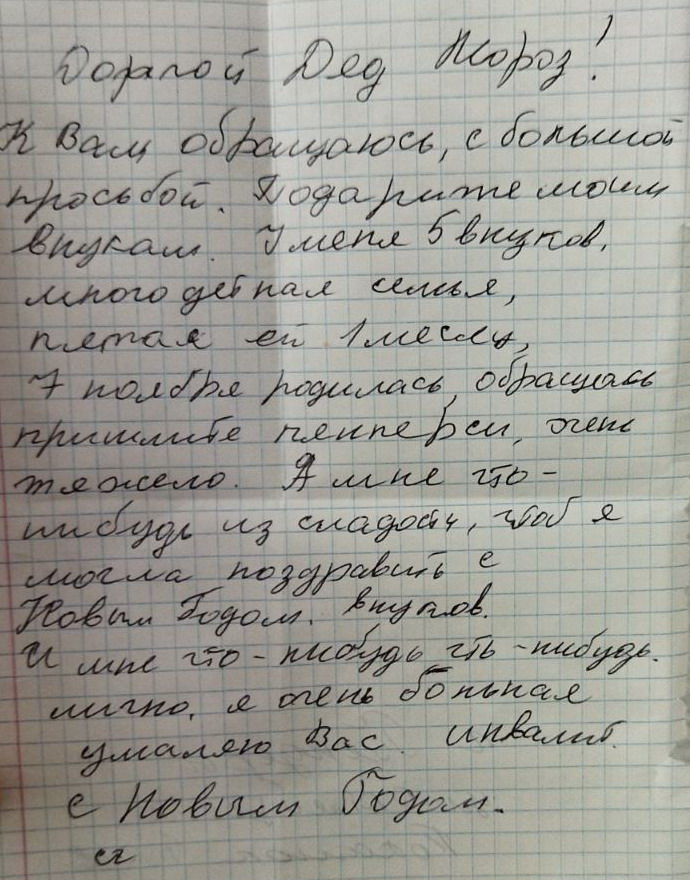 Дорагой Дед Мороз!
К Вам обращаюсь, с большой
просьбой. Подарите моим
внукам. У меня 5 внуков,
много детная семья,
пятая ей 1 месяц,
7 ноября родилась, обращаюсь
пришлите пемперсы, очень
тяжело. А мне что-
нибудь из сладости, чтоб я
могла поздравить с
Новым Годом. внуков.
И мне что-нибудь что-нибудь.
лично. я очень больная
умаляю Вас. инвалит.
с Новым Годом.